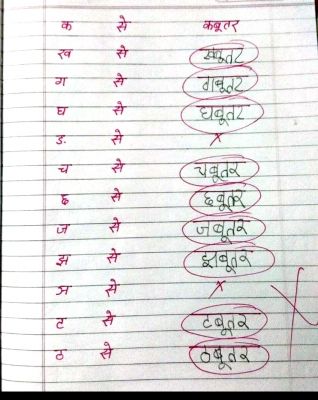 क से कबूतर
ख से खबूतर
ग से गबूतर
घ से घबूतर
ङ. से x
च से चबूतर
छ से छबूतर
ज से जबूतर
झ से झबूतर
ञ से x
ट से टबूतर
ठ से ठबूतर